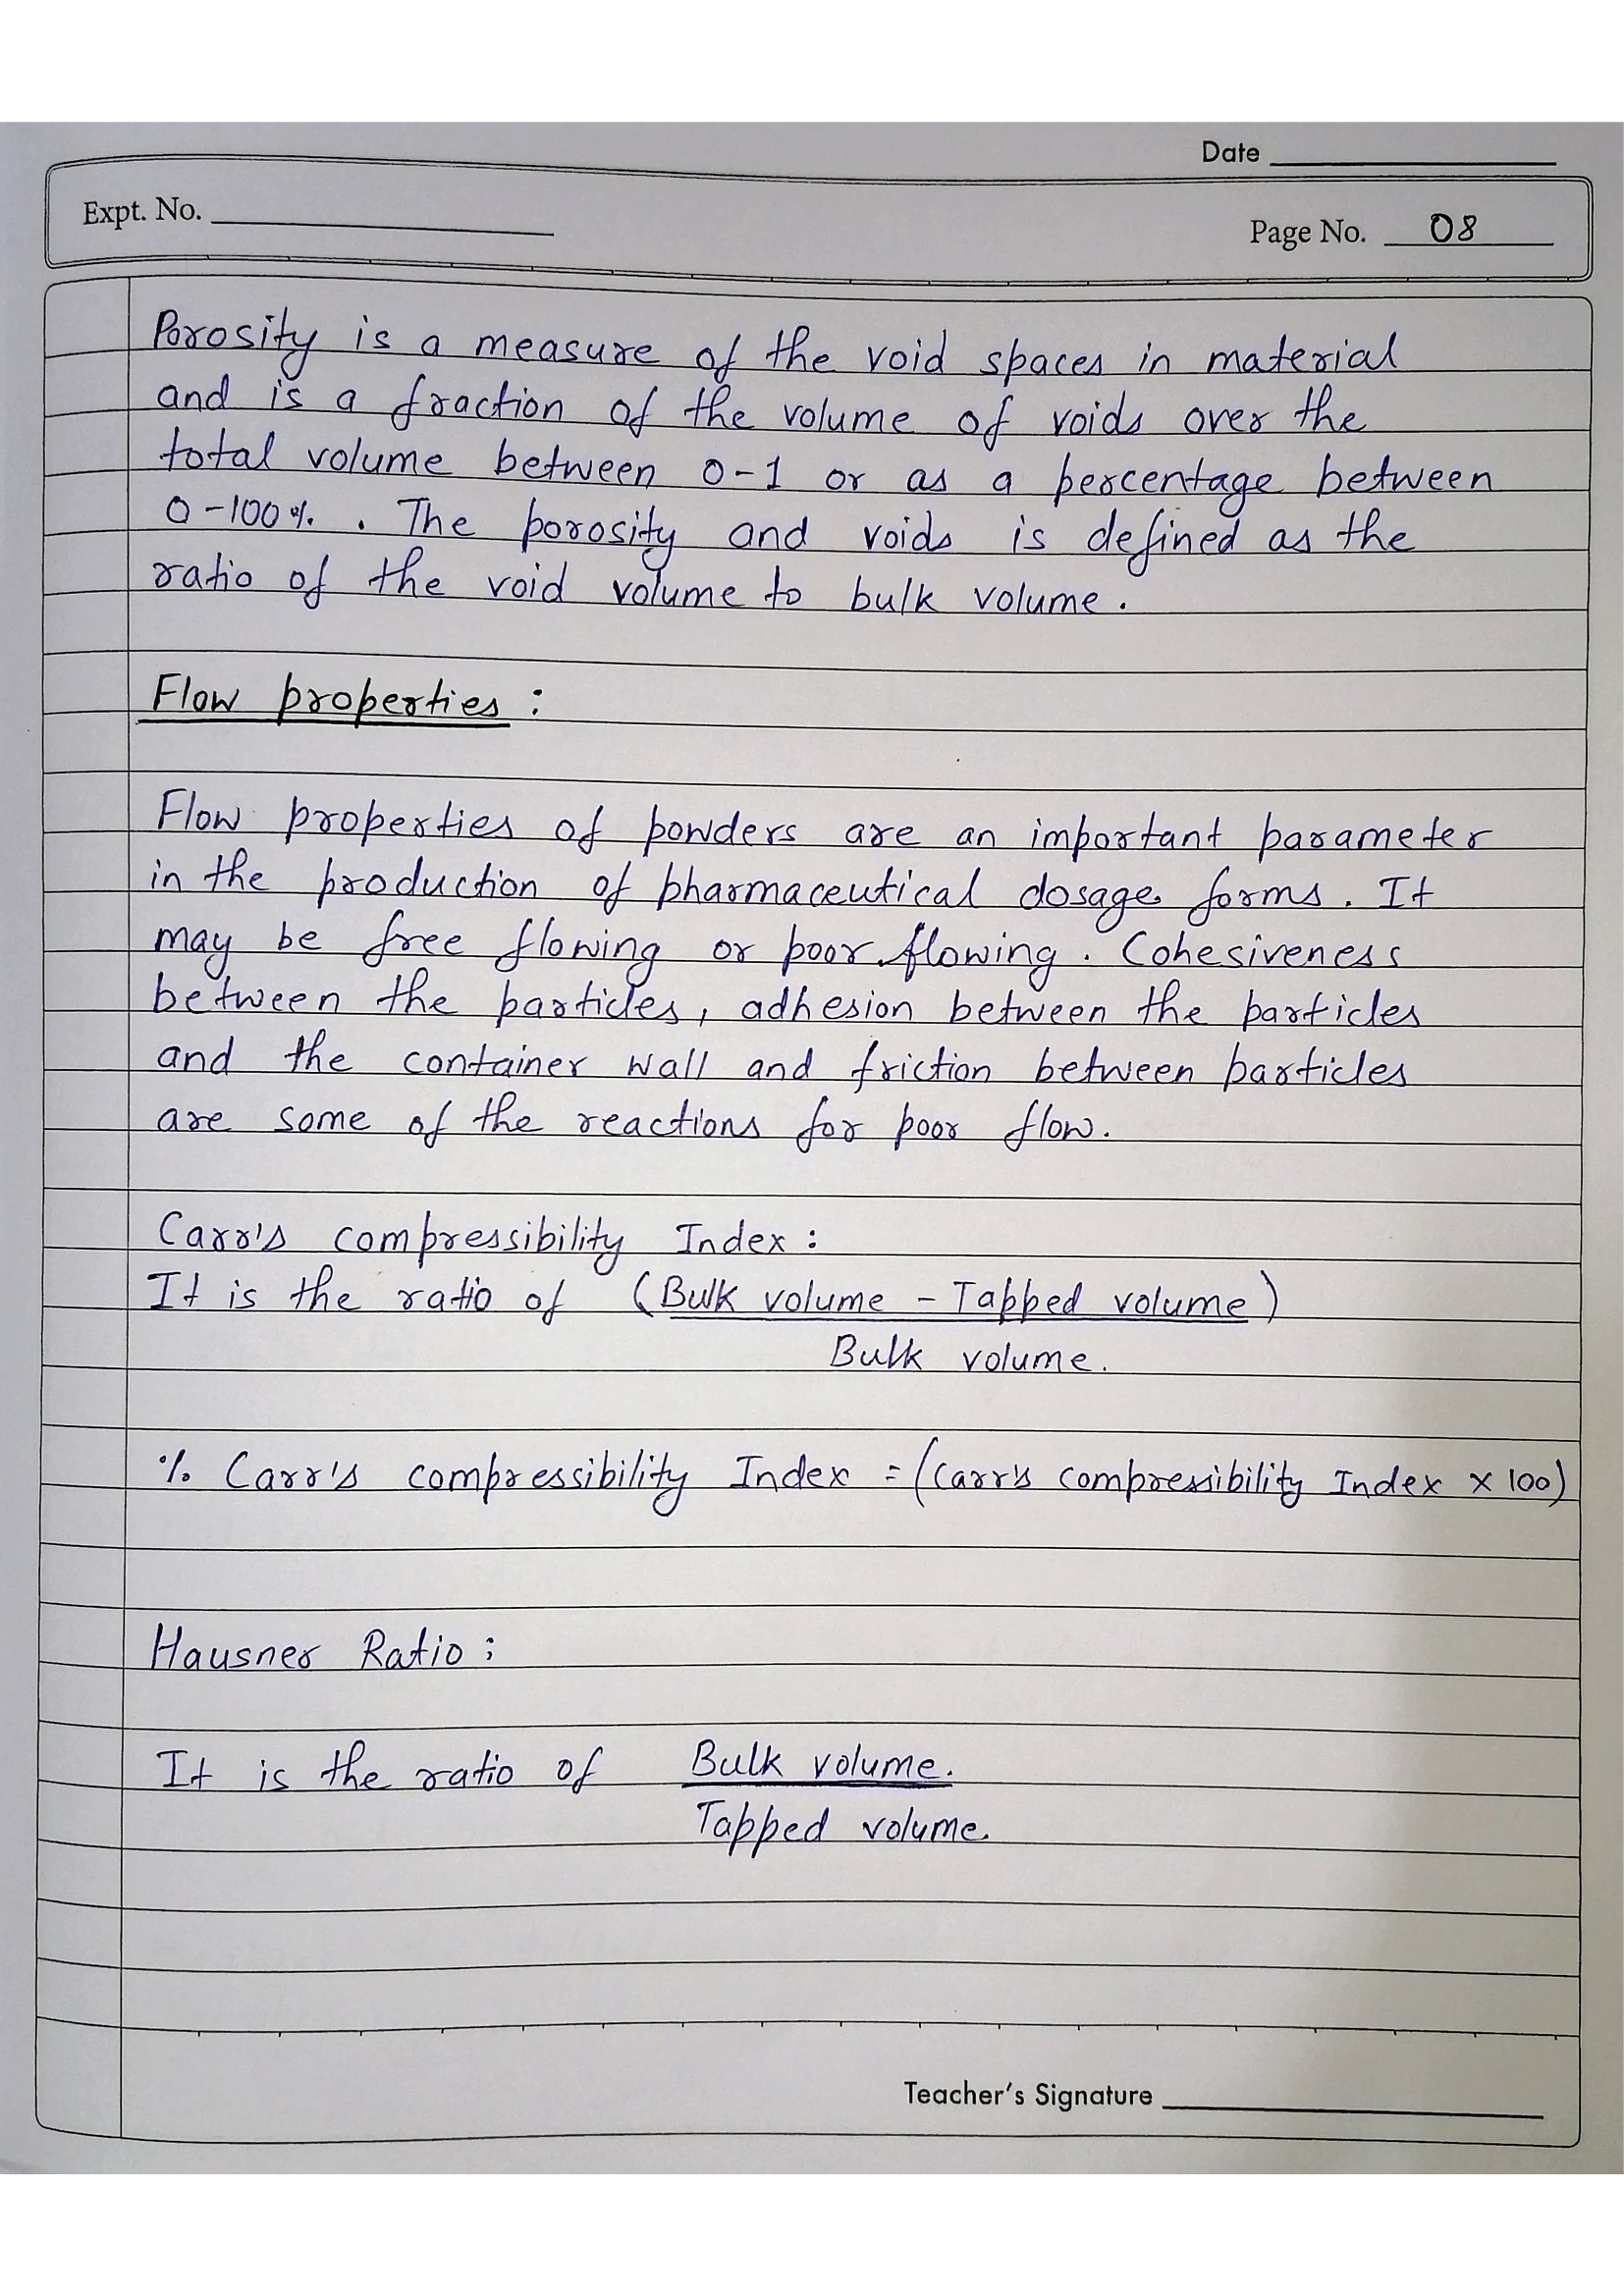 Date
Expt. No.
Page No. 08
Porosity is a measure of the void spaces in material
and is a fraction of the volume of voids over the
total volume between 0-1 or as a percentage between
0-100%. The porosity and voids is defined as the
ratio of the void volume to bulk volume.
Flow properties :
Flow properties of powders are an important parameter
in the production of pharmaceutical dosage forms. It
may be free flowing or poor flowing. Cohesiveness
between the particles, adhesion between the particles
and the container wall and friction between particles
are some of the reactions for poor flow.
Carr's compressibility Index :
It is the ratio of (Bulk volume - Tapped volume)
Bulk volume.
% Carr's compressibility Index = (Carr's compressibility Index x 100)
Hausner Ratio :
It is the ratio of Bulk volume.
Tapped volume.
Teacher's Signature